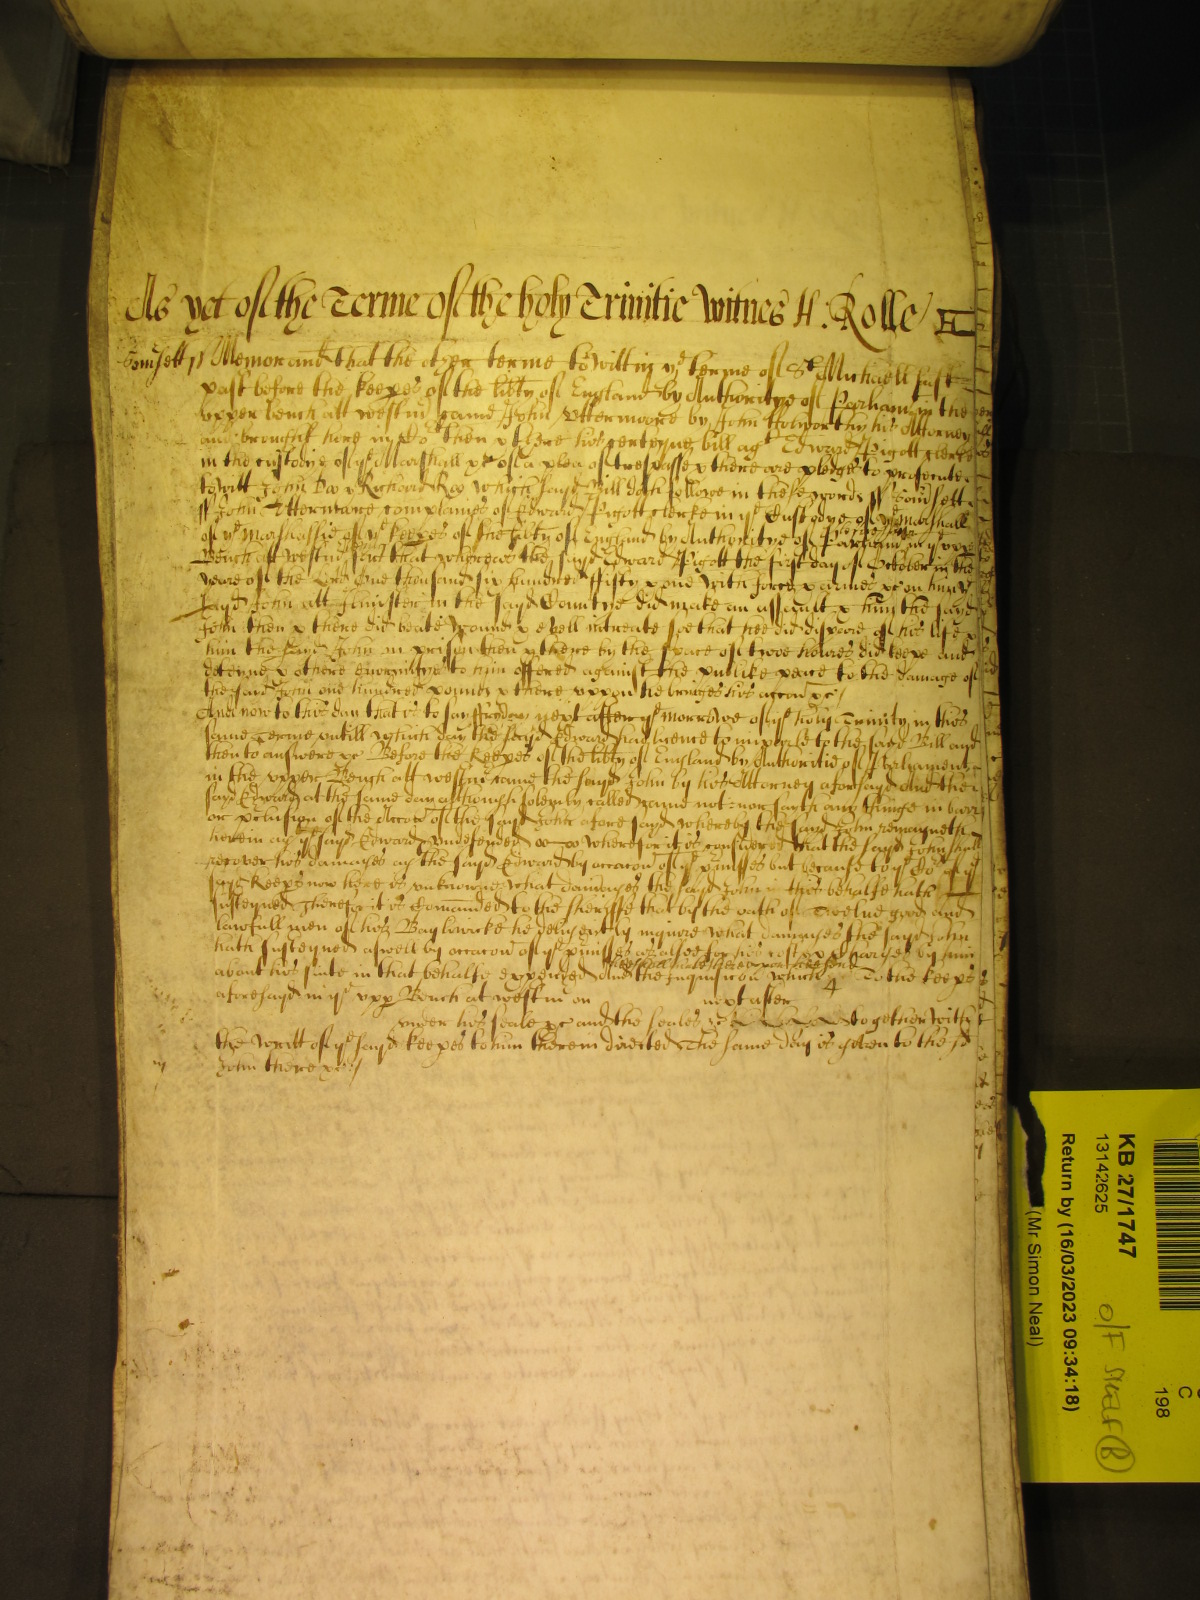 As yet of the Terme of the holy Trinitie Witnes H. Rolle
Somsett ss Memorand that the other terme to witt in ye terme of St Michaell last
past before the keepers of the libty of England by Authoritye of Parliamt in the
upper bench att westm came John Uttermoore by John his Attorney
and brought here into Co then & there his certeyne bill agt Edward Pigott clerke
in the custodye of ye Marshall &c of a plea of trespasse & there are pledges to prosecute
to witt John Doe & Richard Roe which sayd Bill doth followe in these words ss Somsett
ss John Uttermoore complaines of Edward Pigott clerke in ye Custodye of ye Marshall
of ye Marshalsie of ye keeps of the libty of England by Authoritye of Parliamt in ye upper
Bench att Westm for that whereas the sayd Edward Pigott the first day of October in the
yeare of the Lord One thousand six hundred ffifty & one with force & armes &c on him ye
sayd John att Ilmister in the sayd Countye did make an assault & him the sayd
John then & there did beate wound & evell intreate soe that hee did dispaire of his life &
him the sayd John in prison then & there by the space of twoe houres did keepe and
deteyne & others enormityes to him offered against the publike peace to the damage of
the sayd John one hundred pounds & there uppon he bringes his accon &c
And now to this day that is to say ffryday next after ye morrowe of ye holy Trinity in this
same Terme untill which day the sayd Edward had licence to imparle to the sayd Bill and
then to answere &c Before the keepers of the libty of England by Authoritie of Parliament
in the upper Bench att westm came the sayd John by his Attorney aforesayd And the
sayd Edward at the same day although solemly called came not nor sayth any thinge in barr
or preclusion of the Accon of the sayd John aforesayd whereby the sayd John remayneth
herein agt ye sayd Edward undefended &c Wherefore it is considered that the sayd John shall
recover his damages agt the sayd Edward by occacon of ye pmisses but because to ye Co of ye
sayd keeps now here is unknowne what damages the sayd John in this behalfe hath
susteyned Therefore it is Comanded to the Sheriffe that by the oath of Twelve good and
lawfull men of his Baylywicke he deligently inquire what damages the sayd John
hath susteyned aswell by occacon of ye pmisses as alsoe for his costs & charges by him
about his suite in that behalfe expended And the inquisicon which To the keeps
aforesayd in ye upp Bench at westm on next after
under his seale &c and the seales &c together with
the writt of ye sayd keepes to him therein directed The same day is given to the sd
John there &c
KB 27/1747
13142625
Return by (16/03/2023 09:34:18)
(Mr Simon Neal)
O/F
C
198